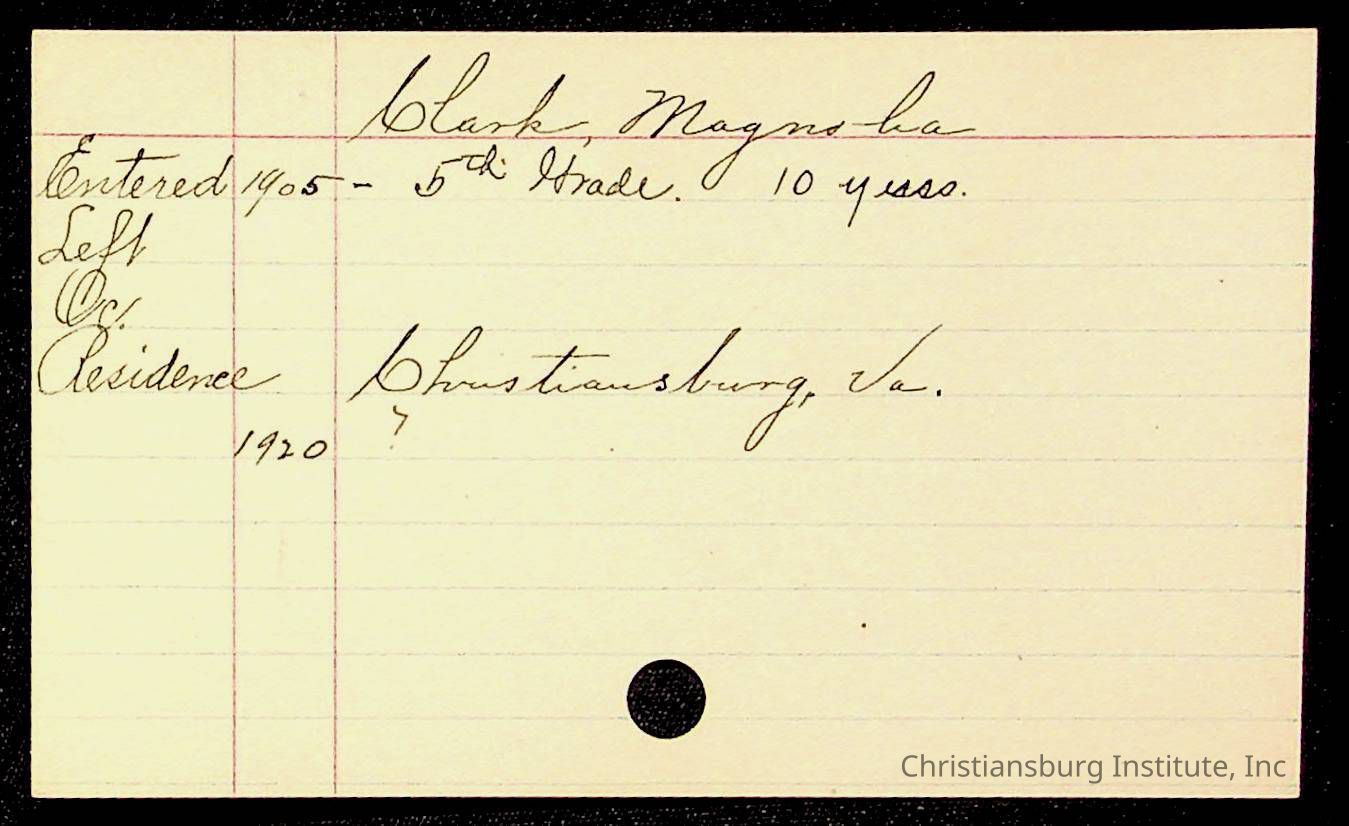 Clark, Magnolia
Entered 1905 - 5th Grade. 10 years.
Left
Oc.
Residence Christiansburg, Va.
1920 ?
Christiansburg Institute, Inc